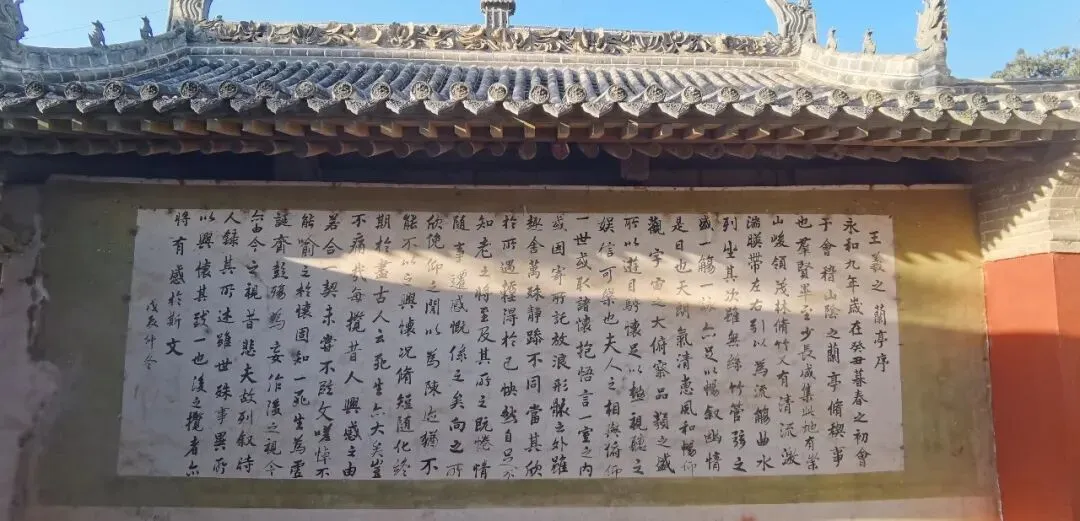 王羲之 蘭亭序
永和九年歲在癸丑暮春之初會
于會稽山陰之蘭亭脩禊事
也羣賢畢至少長咸集此地有崇
山峻領茂林脩竹又有清流激
湍暎帶左右引以為流觴曲水
列坐其次雖無絲竹管弦之
盛一觴一詠亦足以暢叙幽情
是日也天朗氣清惠風和暢仰
觀宇宙之大俯察品類之盛
所以遊目騁懷足以極視聽之
娛信可樂也夫人之相與俯仰
一世或取諸懷抱悟言一室之內
或因寄所託放浪形骸之外雖
趣舍萬殊靜躁不同當其欣
於所遇暫得於己怏然自足不
知老之將至及其所之既惓情
隨事遷感慨係之矣向之所
欣俛仰之閒以為陳迹猶不
能不以之興懷況脩短隨化終
期於盡古人云死生亦大矣豈
不痛哉每攬昔人興感之由
若合一契未嘗不臨文嗟悼不
能喻之於懷固知一死生為虛
誕齊彭殤為妄作後之視今
亦由今之視昔悲夫故列叙時
人錄其所述雖世殊事異所
以興懷其致一也後之攬者亦
將有感於斯文
仲冬